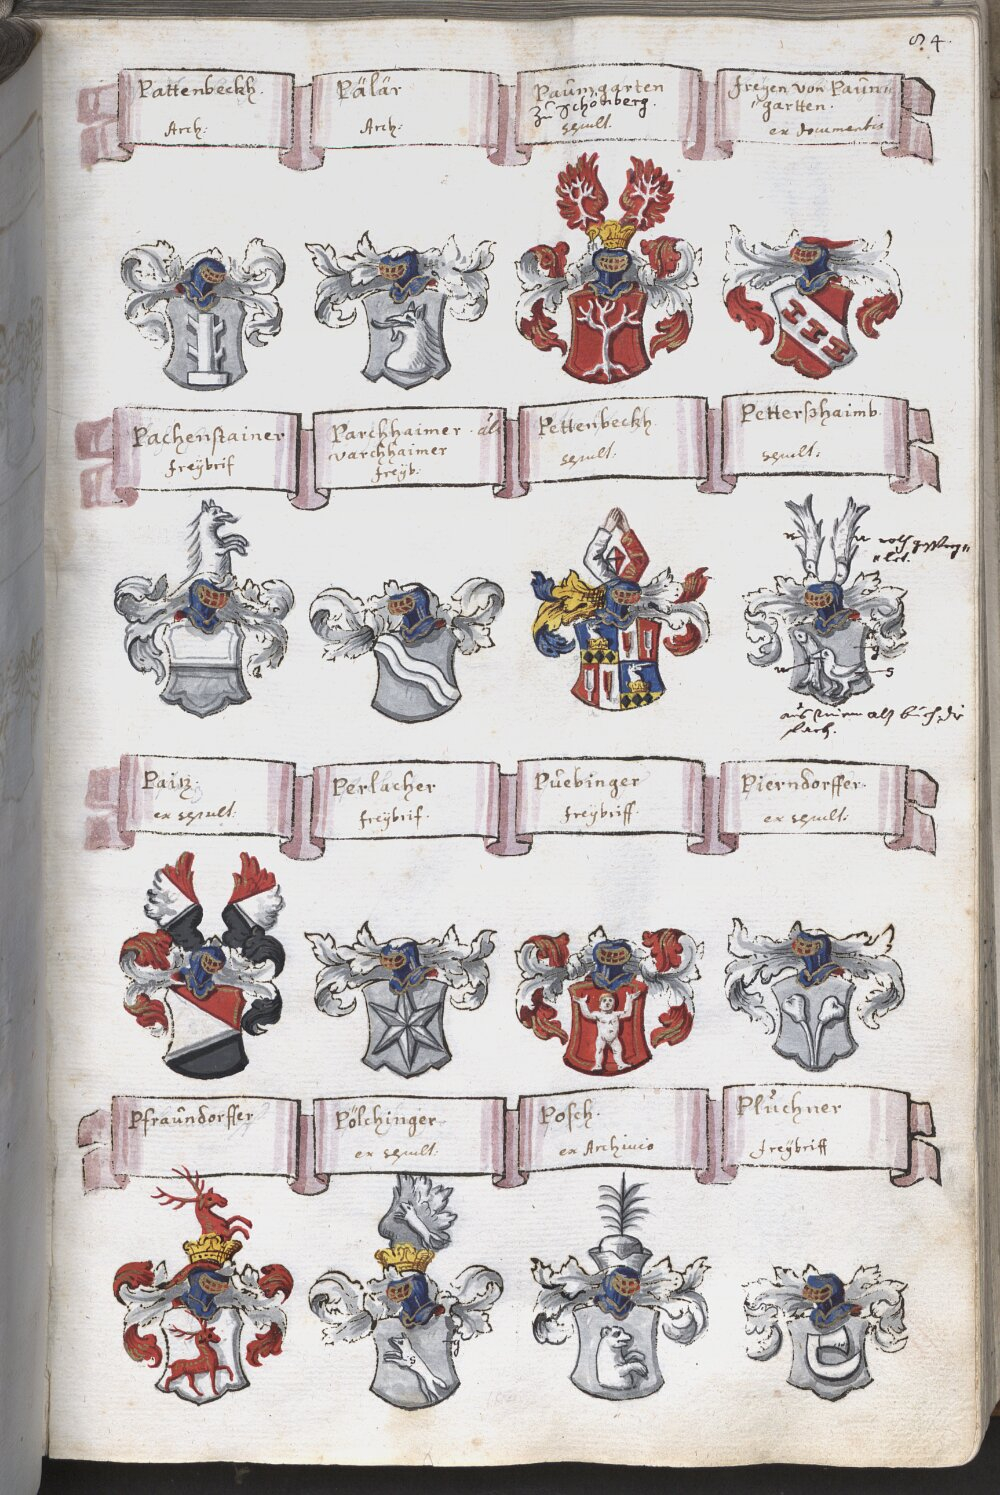 84.
Pattenbeckh.
Arch:
Pälär
Arch:
Paumgarten
Zu Schönberg.
sepult.
Freyen von Paum¬
gartten.
ex documentis
Pachenstainer
freÿbrif
Parchhaimer. als
varchhaimer
freÿb:
Pettenbeckh
sepult:
Petterßhaimb.
sepult:
w
w
g
w
s
Paitz.
ex sepult:
Perlacher
freÿbrif.
Püebinger
freÿbriff.
Pierndorffer.
ex sepult:
Pfraündorffer
Pölchinger.
ex sepult:
Posch.
ex Archivio
Plüchner
freÿbriff
s
g